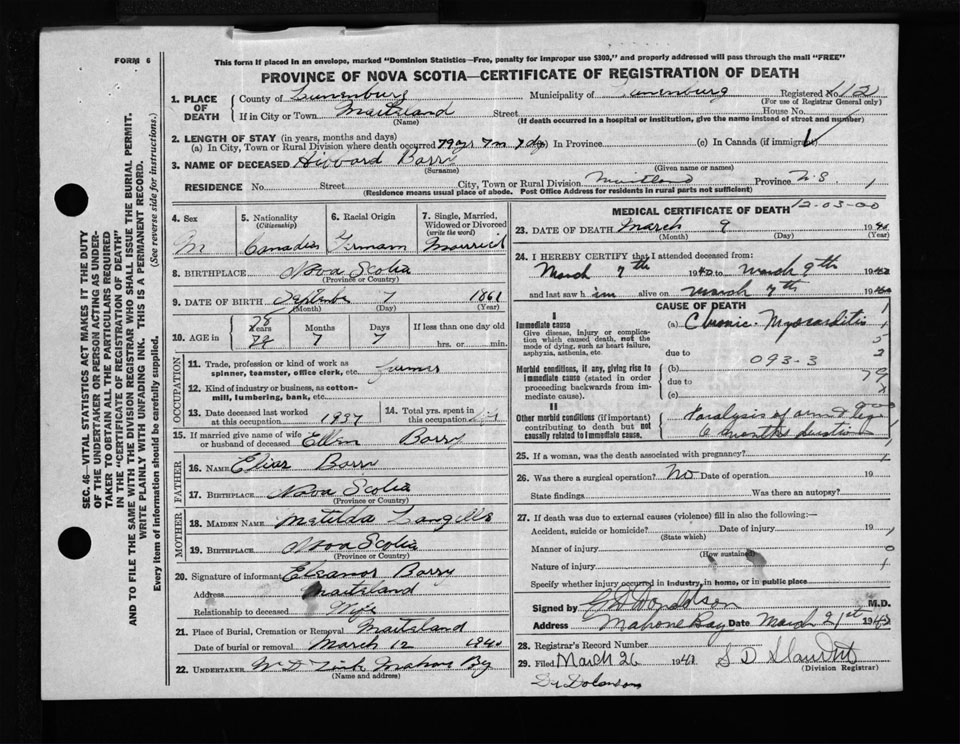 FORM 6
This form if placed in an envelope, marked "Dominion Statistics—Free, penalty for improper use $300," and properly addressed will pass through the mail "FREE"
PROVINCE OF NOVA SCOTIA—CERTIFICATE OF REGISTRATION OF DEATH
SEC. 46—VITAL STATISTICS ACT MAKES IT THE DUTY
OF THE UNDERTAKER OR PERSON ACTING AS UNDER-
TAKER TO OBTAIN ALL THE PARTICULARS REQUIRED
IN THE "CERTIFICATE OF REGISTRATION OF DEATH"
AND TO FILE THE SAME WITH THE DIVISION REGISTRAR WHO SHALL ISSUE THE BURIAL PERMIT.
WRITE PLAINLY WITH UNFADING INK. THIS IS A PERMANENT RECORD.
Every item of information should be carefully supplied. (See reverse side for instructions.)
1. PLACE OF DEATH
County of Lunenburg Municipality of Lunenburg Registered No. 121
(For use of Registrar General only)
If in City or Town Maitland Street House No.
(Name) (If death occurred in a hospital or institution, give the name instead of street and number)
2. LENGTH OF STAY (in years, months and days)
(a) In City, Town or Rural Division where death occurred 79 yrs 7 m 7 dys (b) In Province (c) In Canada (if immigrant)
3. NAME OF DECEASED Hibbard Barry
(Surname) (Given name or names)
RESIDENCE No. Street City, Town or Rural Division Maitland Province N.S 1
(Residence means usual place of abode. Post Office Address for residents in rural parts not sufficient)
4. Sex M
5. Nationality (Citizenship) Canadian
6. Racial Origin German
7. Single, Married, Widowed or Divorced (write the word) Married
8. BIRTHPLACE Nova Scotia
(Province or Country)
9. DATE OF BIRTH September 7 1861
(Month) (Day) (Year)
10. AGE in Years 78 Months 7 Days 7 If less than one day old hrs. or min.
OCCUPATION
11. Trade, profession or kind of work as spinner, teamster, office clerk, etc. farmer
12. Kind of industry or business, as cotton-mill, lumbering, bank, etc.
13. Date deceased last worked at this occupation 1937
14. Total yrs. spent in this occupation
15. If married give name of wife or husband of deceased Ellen Barry
FATHER
16. NAME Elias Barry
17. BIRTHPLACE Nova Scotia
(Province or Country)
MOTHER
18. MAIDEN NAME Matilda Langille
19. BIRTHPLACE Nova Scotia
(Province or Country)
20. Signature of informant Eleanor Barry
Address Maitland
Relationship to deceased Wife
21. Place of Burial, Cremation or Removal Maitland
Date of burial or removal March 12 1940
22. UNDERTAKER Mahone Bay
(Name and address)
MEDICAL CERTIFICATE OF DEATH 12-03-00
23. DATE OF DEATH March 9 1940
(Month) (Day) (Year)
24. I HEREBY CERTIFY that I attended deceased from:
March 7th 1940 to March 9th 1940
and last saw him alive on March 7th 1940
CAUSE OF DEATH
I
Immediate cause
Give disease, injury or complication which caused death, not the mode of dying, such as heart failure, asphyxia, asthenia, etc.
(a) Chronic Myocarditis
due to
Morbid conditions, if any, giving rise to immediate cause (stated in order proceeding backwards from immediate cause).
(b) 093-3
due to
(c)
II
Other morbid conditions (if important) contributing to death but not causally related to immediate cause.
Paralysis of arm & leg
6 months duration
25. If a woman, was the death associated with pregnancy?
26. Was there a surgical operation? No Date of operation 19
State findings Was there an autopsy?
27. If death was due to external causes (violence) fill in also the following:—
Accident, suicide or homicide? Date of injury 19
(State which)
Manner of injury
(How sustained)
Nature of injury
Specify whether injury occurred in industry, in home, or in public place
Signed by Donaldson M.D.
Address Mahone Bay Date March 21st 1940
28. Registrar's Record Number
29. Filed March 26 1940 S D
(Division Registrar)